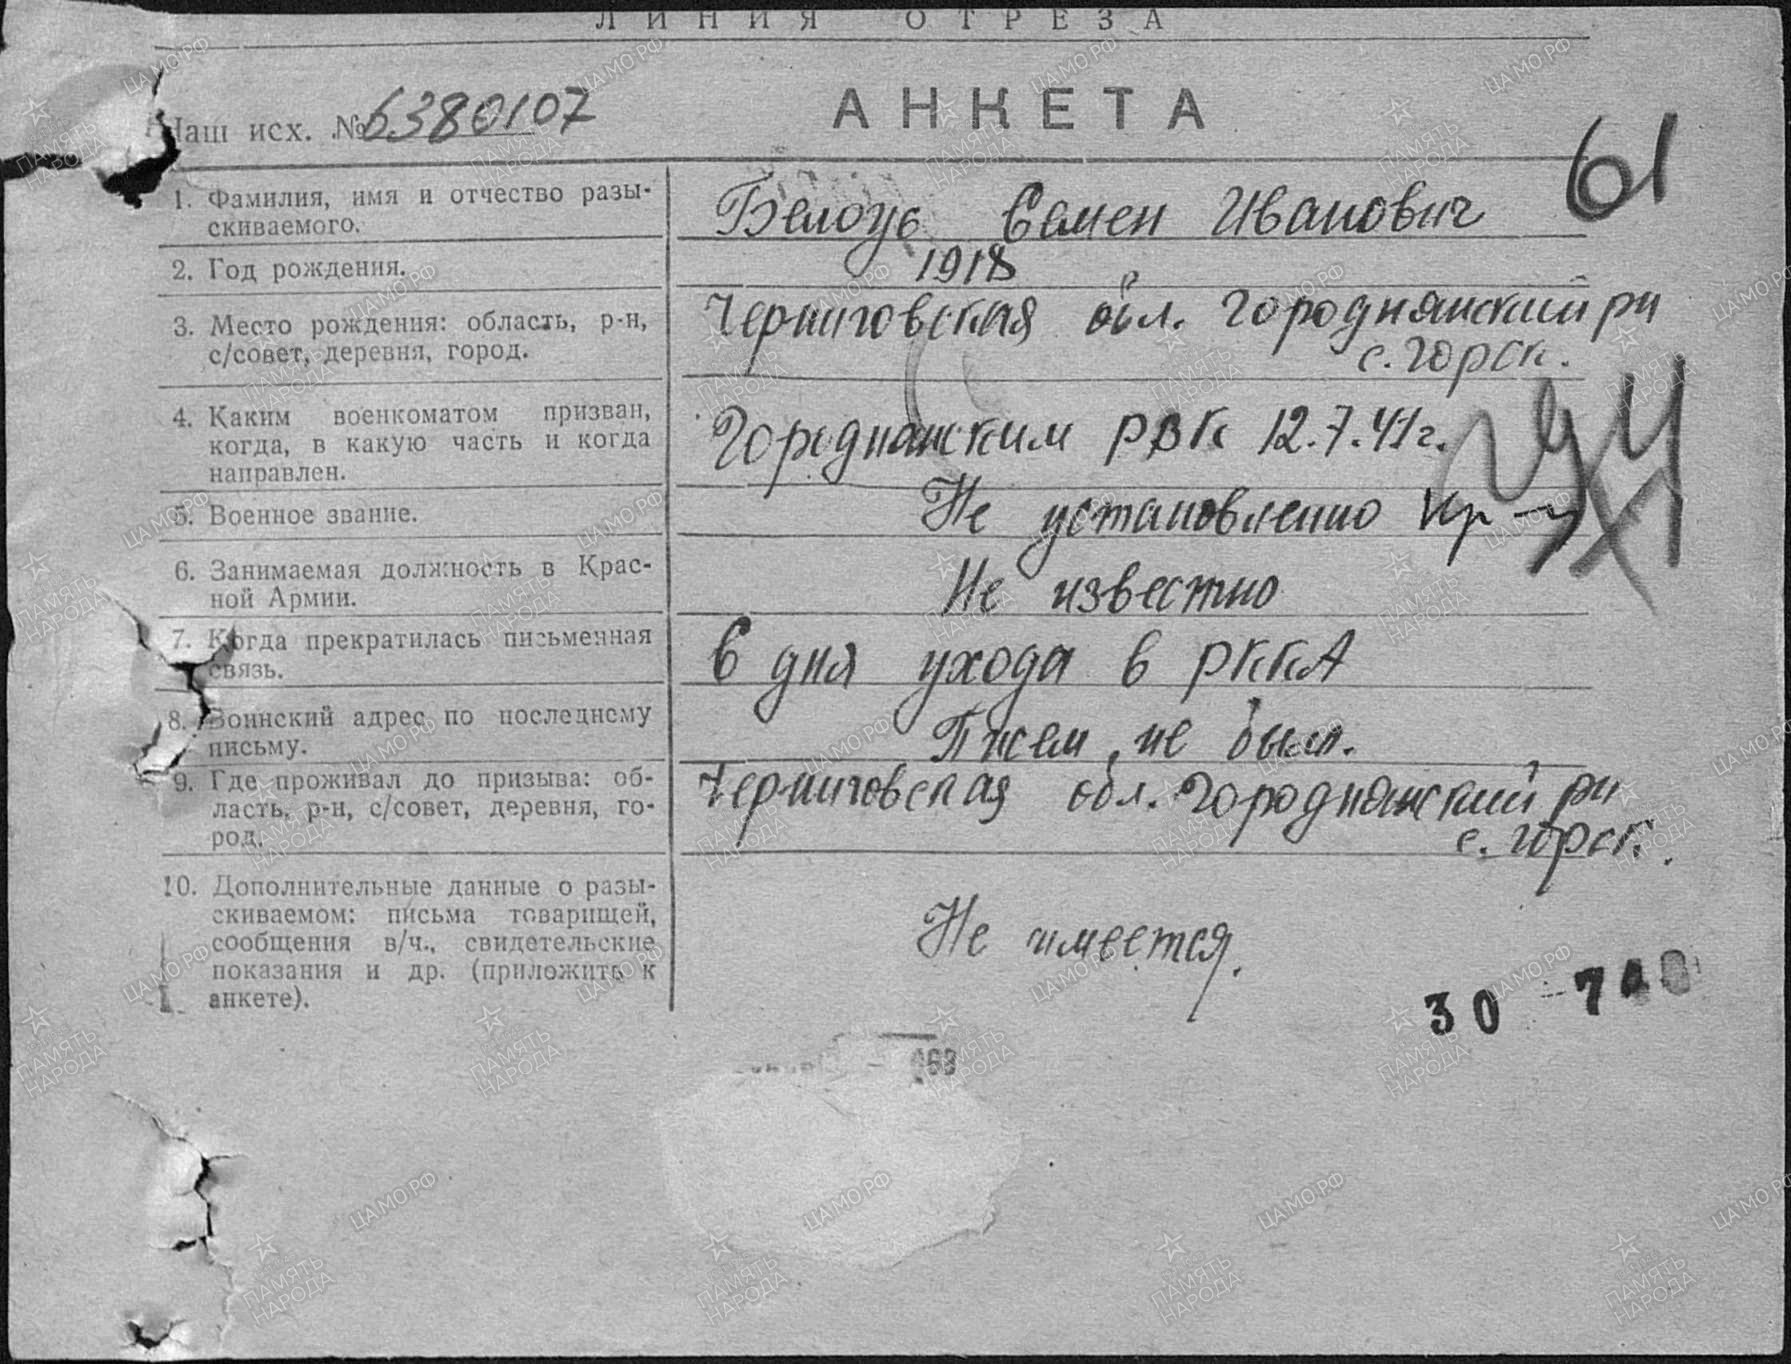 ЛИНИЯ ОТРЕЗА
Наш исх. № 6380107
АНКЕТА
61
1. Фамилия, имя и отчество разы-
скиваемого.
Белоус Семен Иванович
2. Год рождения.
1918
3. Место рождения: область, р-н,
с/совет, деревня, город.
Черниговская обл. Городнянский рн
с. Горск.
4. Каким военкоматом призван,
когда, в какую часть и когда
направлен.
Городнянским РВК 12.7.41г.
5. Военное звание.
Не установлено Кр-ц
6. Занимаемая должность в Крас-
ной Армии.
Не известно
7. Когда прекратилась письменная
связь.
С дня ухода в РККА
8. Воинский адрес по последнему
письму.
Писем не был.
9. Где проживал до призыва: об-
ласть, р-н, с/совет, деревня, го-
род.
Черниговская обл. Городнянский рн
с. Горск.
10. Дополнительные данные о разы-
скиваемом: письма товарищей,
сообщения в/ч., свидетельские
показания и др. (приложить к
анкете).
Не имеется.
30 7
ЦАМО.РФ
ПАМЯТЬ
НАРОДА